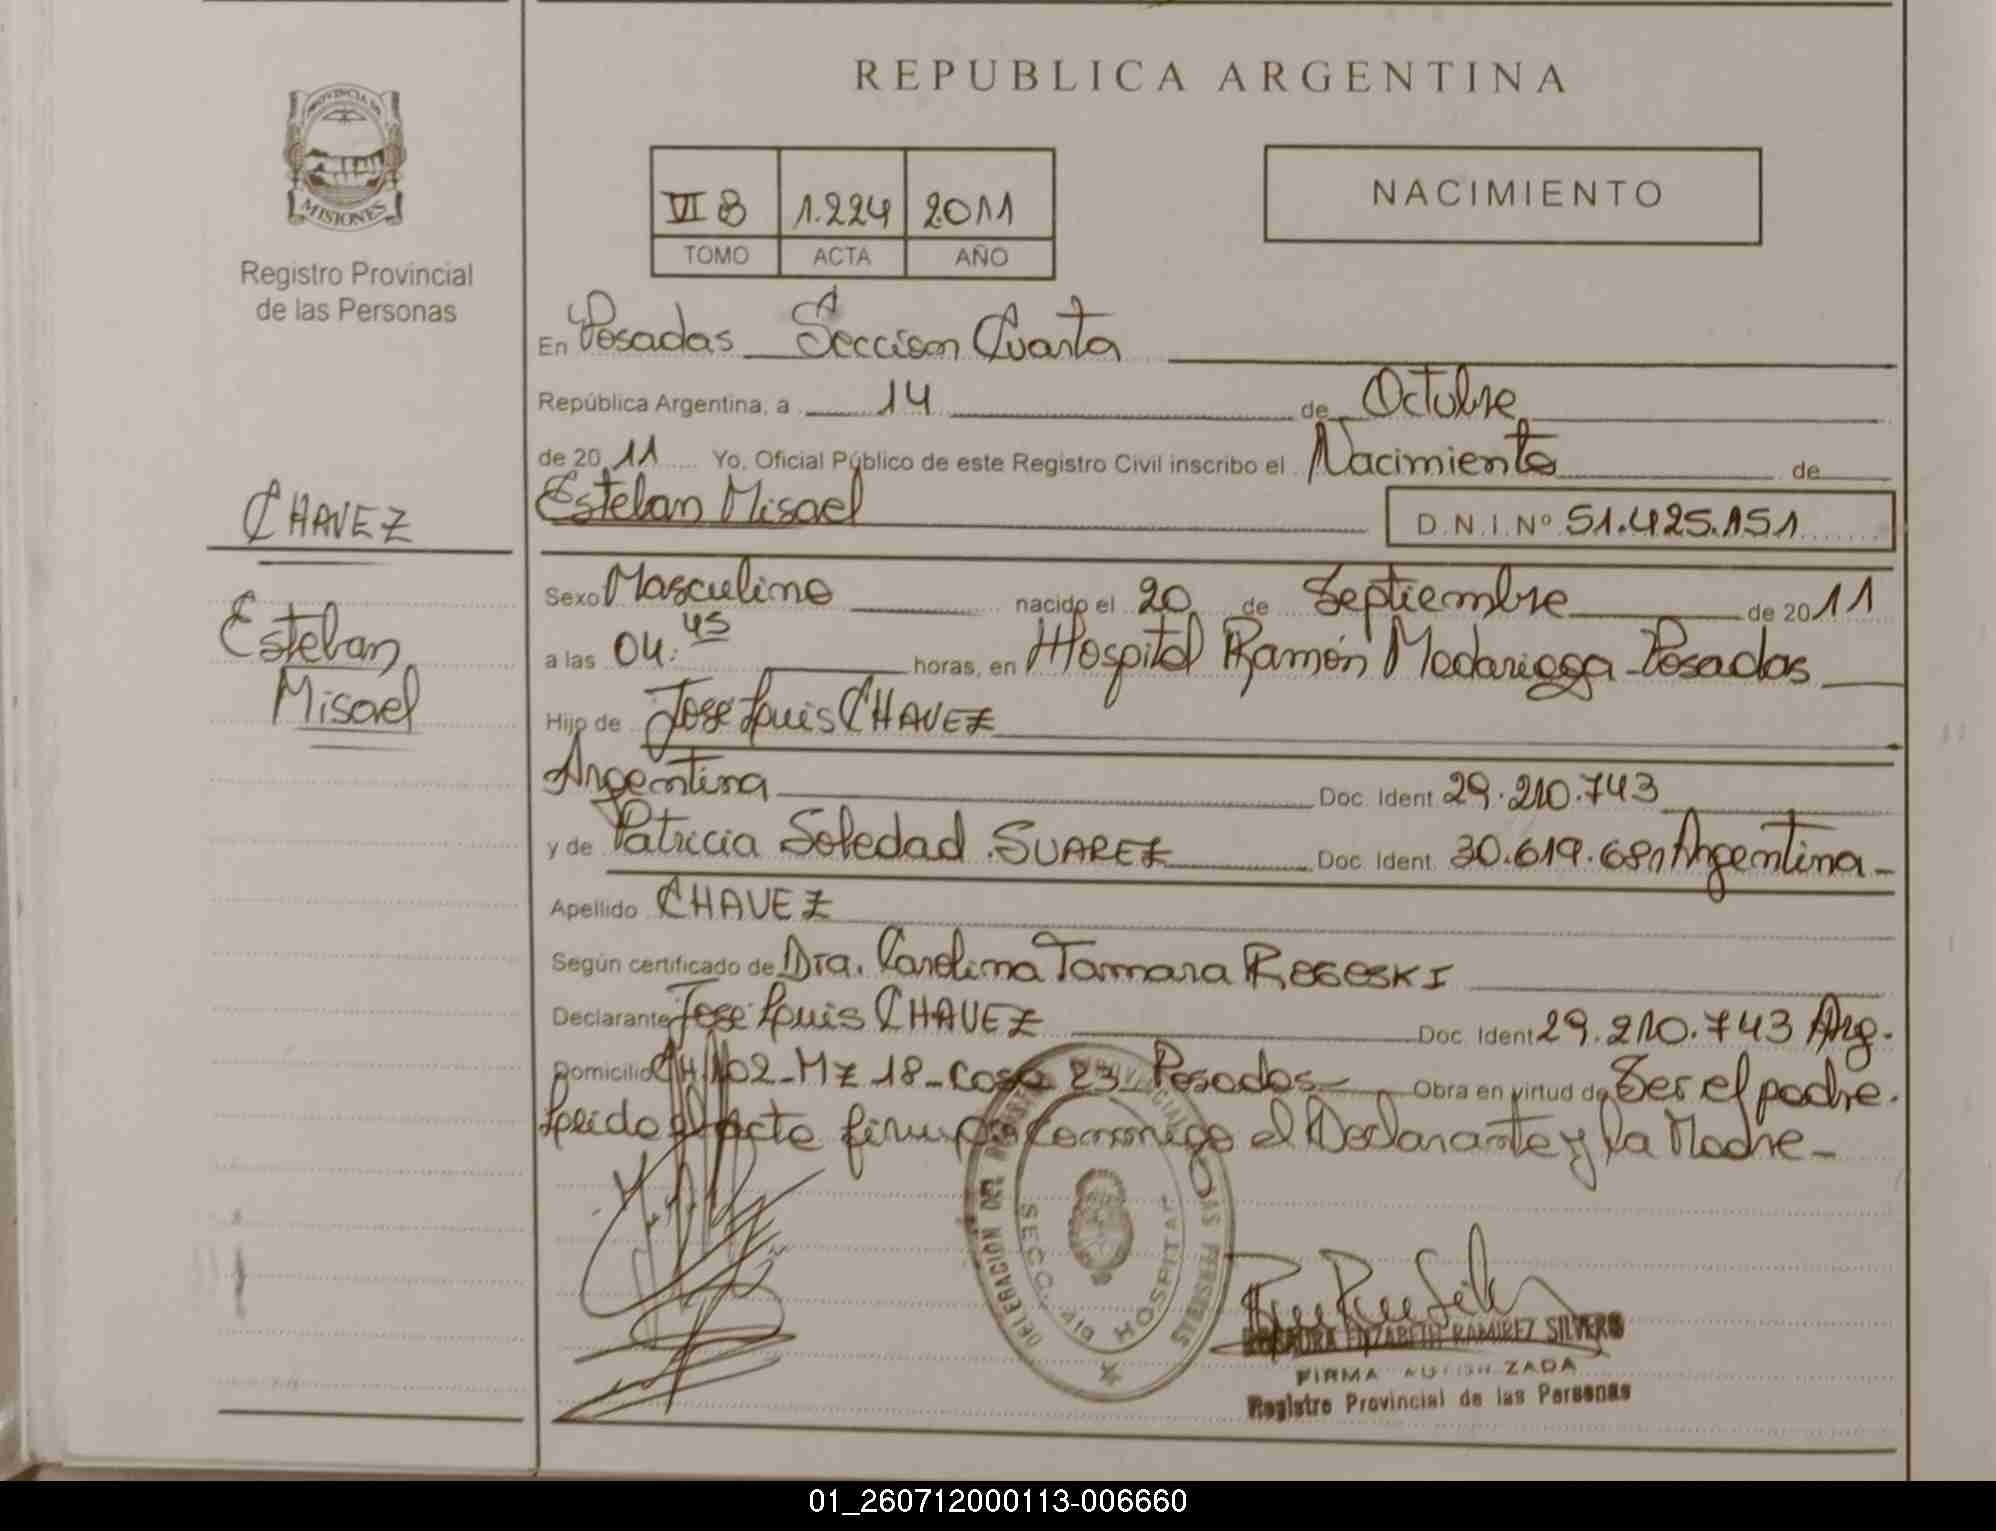 REPUBLICA ARGENTINA
PROVINCIA DE
MISIONES
Registro Provincial
de las Personas
VI B 1.224 2011
TOMO ACTA AÑO
NACIMIENTO
En Posadas Seccion Cuarta
República Argentina, a 14 de Octubre
de 2011 Yo, Oficial Público de este Registro Civil inscribo el Nacimiento de
Esteban Misael D.N.I. Nº 51.425.151
CHAVEZ
Esteban
Misael
Sexo Masculino nacido el 20 de Septiembre de 2011
a las 04:45 horas, en Hospital Ramón Madariaga - Posadas
Hijo de Jose Luis CHAVEZ
Argentina Doc. Ident. 29.210.743
y de Patricia Soledad SUAREZ Doc. Ident. 30.619.681 Argentina -
Apellido CHAVEZ
Según certificado de Dra. Carolina Tamara ROGOSKI
Declarante Jose Luis CHAVEZ Doc. Ident 29.210.743 Arg.
Domicilio CH 102 - Mz 18 - Casa 23 - Posadas - Obra en virtud de Ser el padre.
Leido el Acta firman conmigo el Declarante y la Madre -
DELEGACION DEL REGISTRO PROVINCIAL DE LAS PERSONAS
SECC. 4ta HOSPITAL
ELIZABETH RAMIREZ SILVERO
FIRMA AUTORIZADA
Registro Provincial de las Personas
01_260712000113-006660